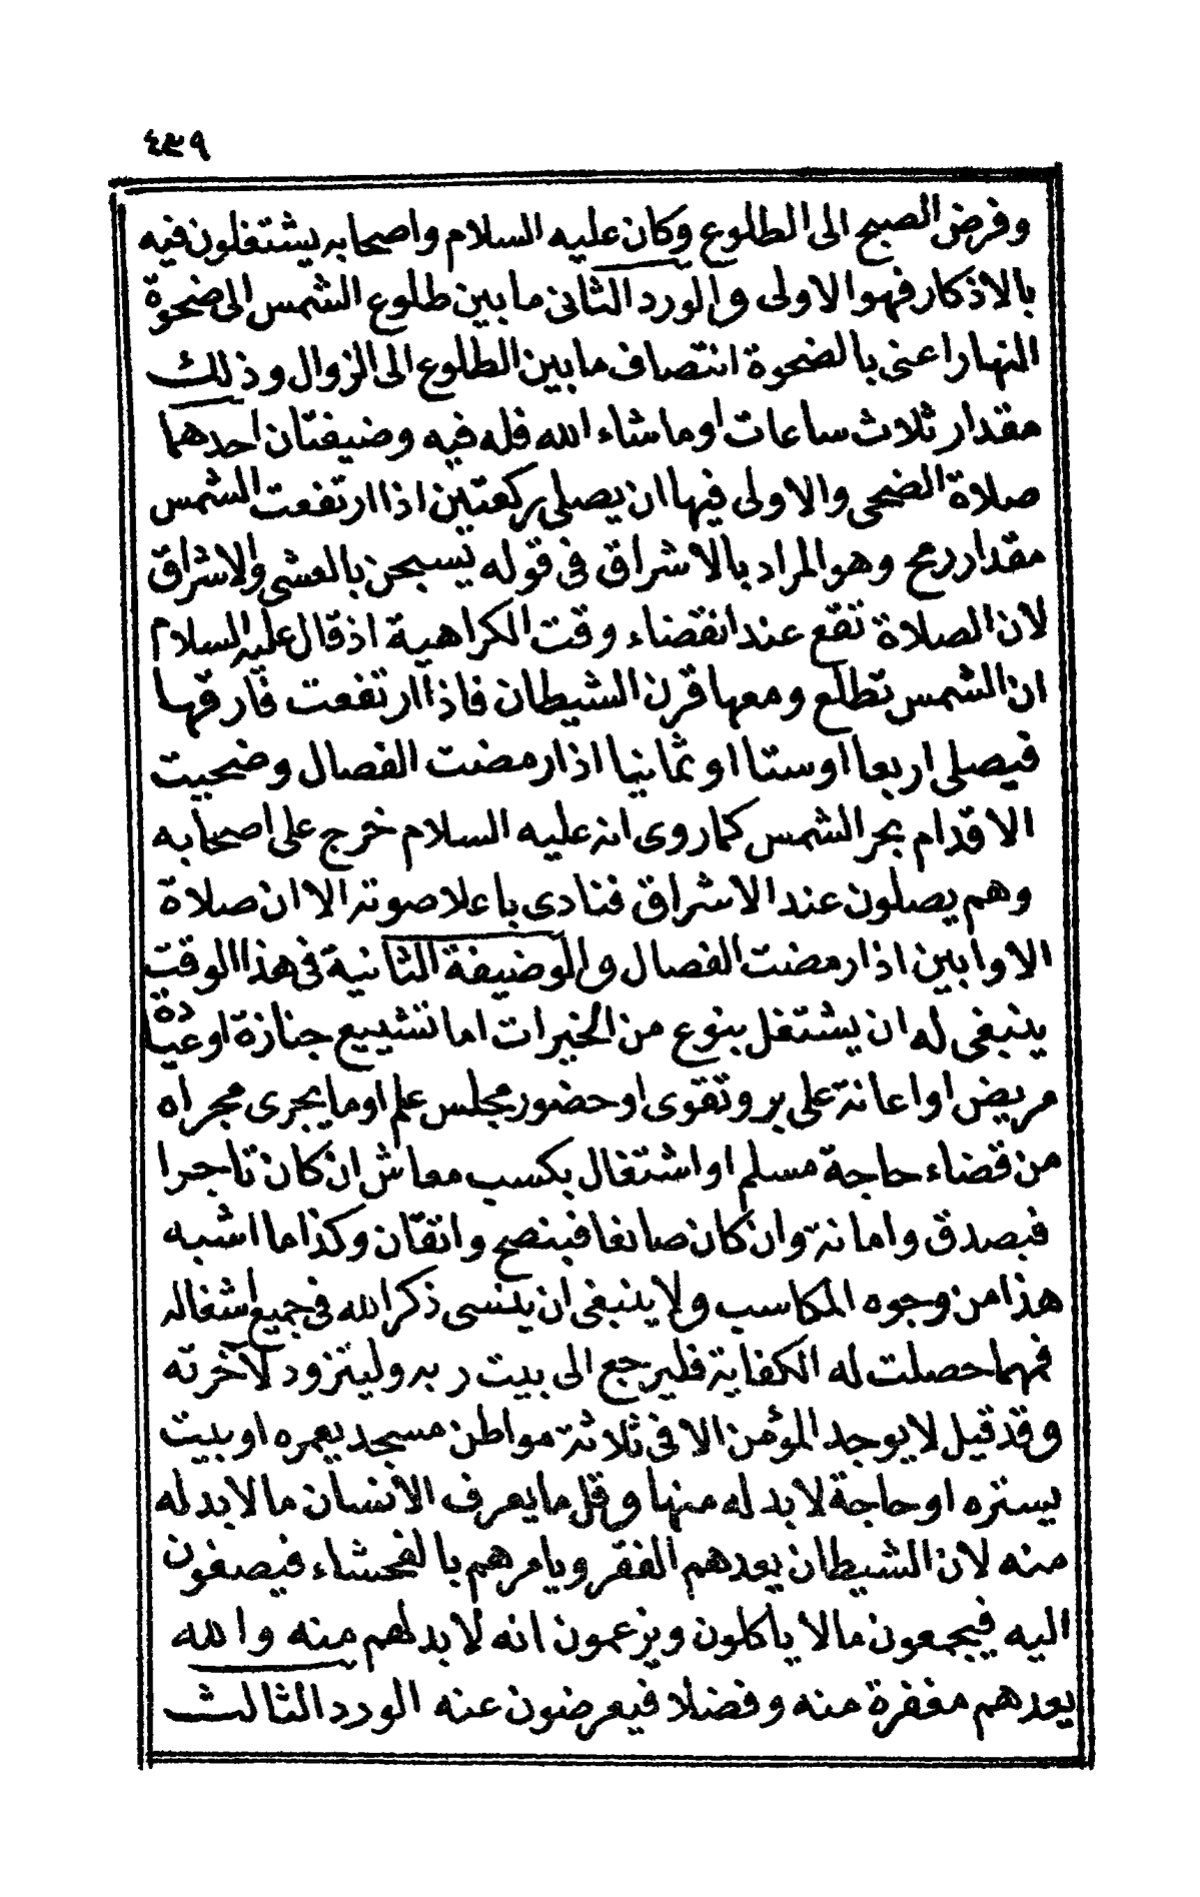 ٤٣٩
وفرض الصبح الى الطلوع وكان عليه السلام واصحابه يشتغلون فيه
بالاذكار فهو الاولى والورد الثانى ما بين طلوع الشمس الى ضحوة
النهار اعنى بالضحوة انتصاف ما بين الطلوع الى الزوال وذلك
مقدار ثلاث ساعات او ما شاء الله فله فيه وضيفتان احدهما
صلاة الضحى والاولى فيها ان يصلى ركعتين اذا ارتفعت الشمس
مقدار رمح وهو المراد بالاشراق فى قوله تسبحن بالعشى والاشراق
لان الصلاة تقع عند انقضاء وقت الكراهية اذ قال عليه السلام
ان الشمس تطلع ومعها قرن الشيطان فاذا ارتفعت فارقها
فيصلى اربعا اوستا او ثمانيا اذا رمضت الفصال وضحيت
الاقدام بحر الشمس كما روى انه عليه السلام خرج على اصحابه
وهم يصلون عند الاشراق فنادى باعلا صوته الا ان صلاة
الاوابين اذا رمضت الفصال والوضيفة الثانية فى هذا الوقت
ينبغى له ان يشتغل بنوع من الخيرات اما تشييع جنازة او عيادة
مريض او اعانة على بر وتقوى او حضور مجلس علم او ما يجرى مجراه
من قضاء حاجة مسلم او اشتغال بكسب معاش ان كان تاجرا
فبصدق وامانة وان كان صانعا فبنصح واتقان وكذا ما اشبه
هذا من وجوه المكاسب ولا ينبغى ان ينسى ذكر الله فى جميع اشغاله
فمهما حصلت له الكفاية فليرجع الى بيت ربه وليتزود لآخرته
وقد قيل لا يوجد المؤمن الا فى ثلاثة مواطن مسجد يعمره او بيت
يستره او حاجة لا بد له منها وقل ما يعرف الانسان ما لا بد له
منه لان الشيطان يعدهم الفقر ويامرهم بالفحشاء فيصغون
اليه فيجمعون ما لا ياكلون ويزعمون انه لا بد لهم منه والله
يعدهم مغفرة منه وفضلا فيعرضون عنه الورد الثالث